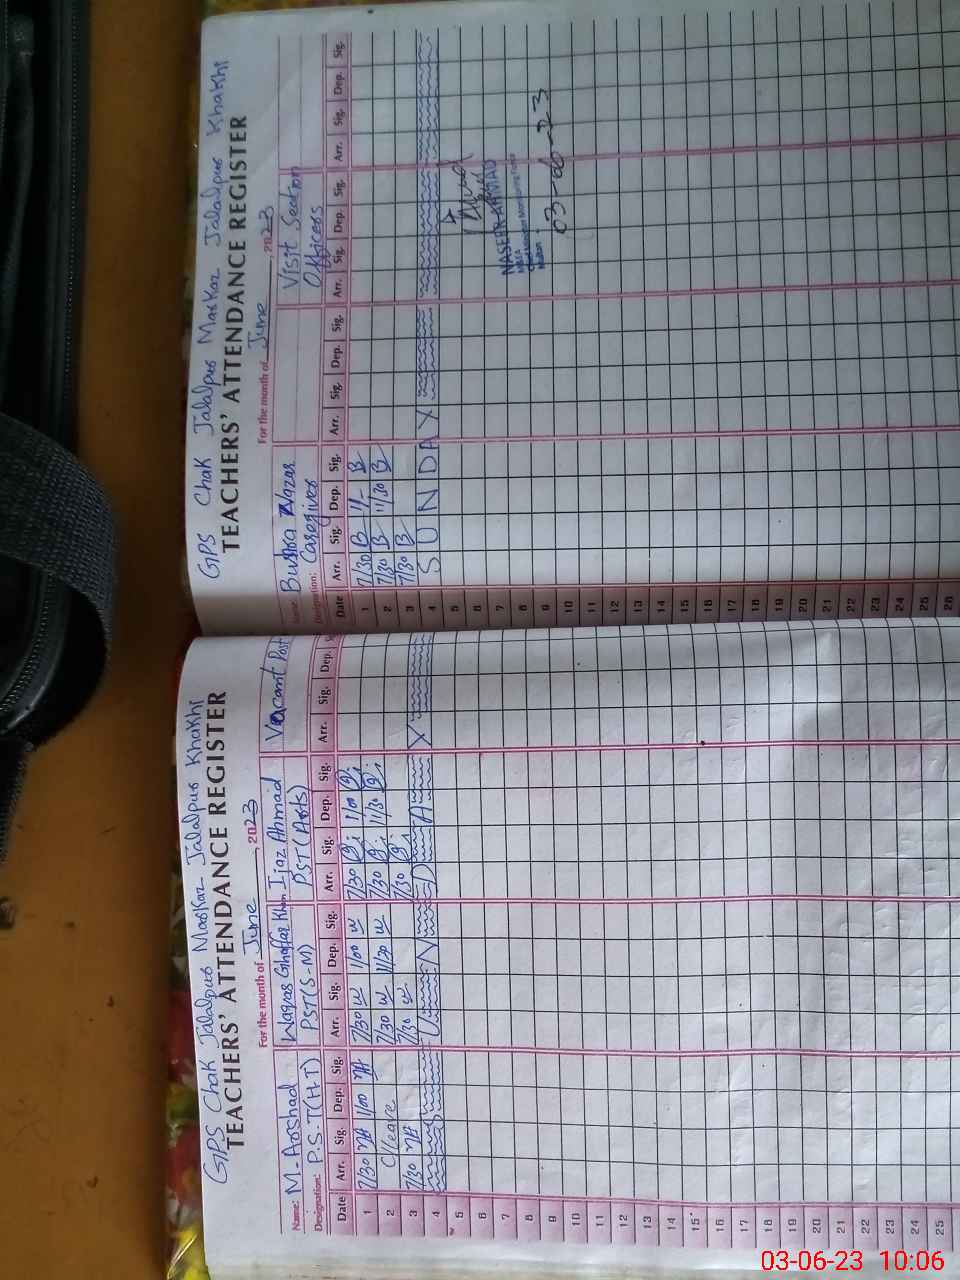 GPS Chak Jalalpur Markaz Jalalpur Khakhi
TEACHERS' ATTENDANCE REGISTER
For the month of June, 2023
Name: M. Arshad Waqas Ghaffar Khan Ijaz Ahmad Vacant Post
Designation: P.S.T(H.T) PST(S-M) PST(Arts)
Date Arr. Sig. Dep. Sig. Arr. Sig. Dep. Sig. Arr. Sig. Dep. Sig. Arr. Sig. Dep. S
1 7/30 MA 1/00 MA 7/30 W 1/00 W 7/30 1/00
2 C/leave 7/30 W 11/30 W 7/30 11/30
3 7/30 MA 7/30 W 7/30
4 S U N D A Y
5
6
7
8
9
10
11
12
13
14
15
16
17
18
19
20
21
22
23
24
25
GPS Chak Jalalpur Markaz Jalalpur Khakhi
TEACHERS' ATTENDANCE REGISTER
For the month of June, 2023
Name: Bushra Visit Section
Designation: Caregiver Officers
Date Arr. Sig. Dep. Sig. Arr. Sig. Dep. Sig. Arr. Sig. Dep. Sig. Arr. Sig. Dep. Sig.
1 7/30 B 11/- B
2 7/30 B 11/30 B
3 7/30 B
4 S U N D A Y
5
6
7
8
9
10
11
12
13
14
15
16
17
18
19
20
21
22
23
24
25
26
NASEER AHMAD
03-06-23
03-06-23 10:06